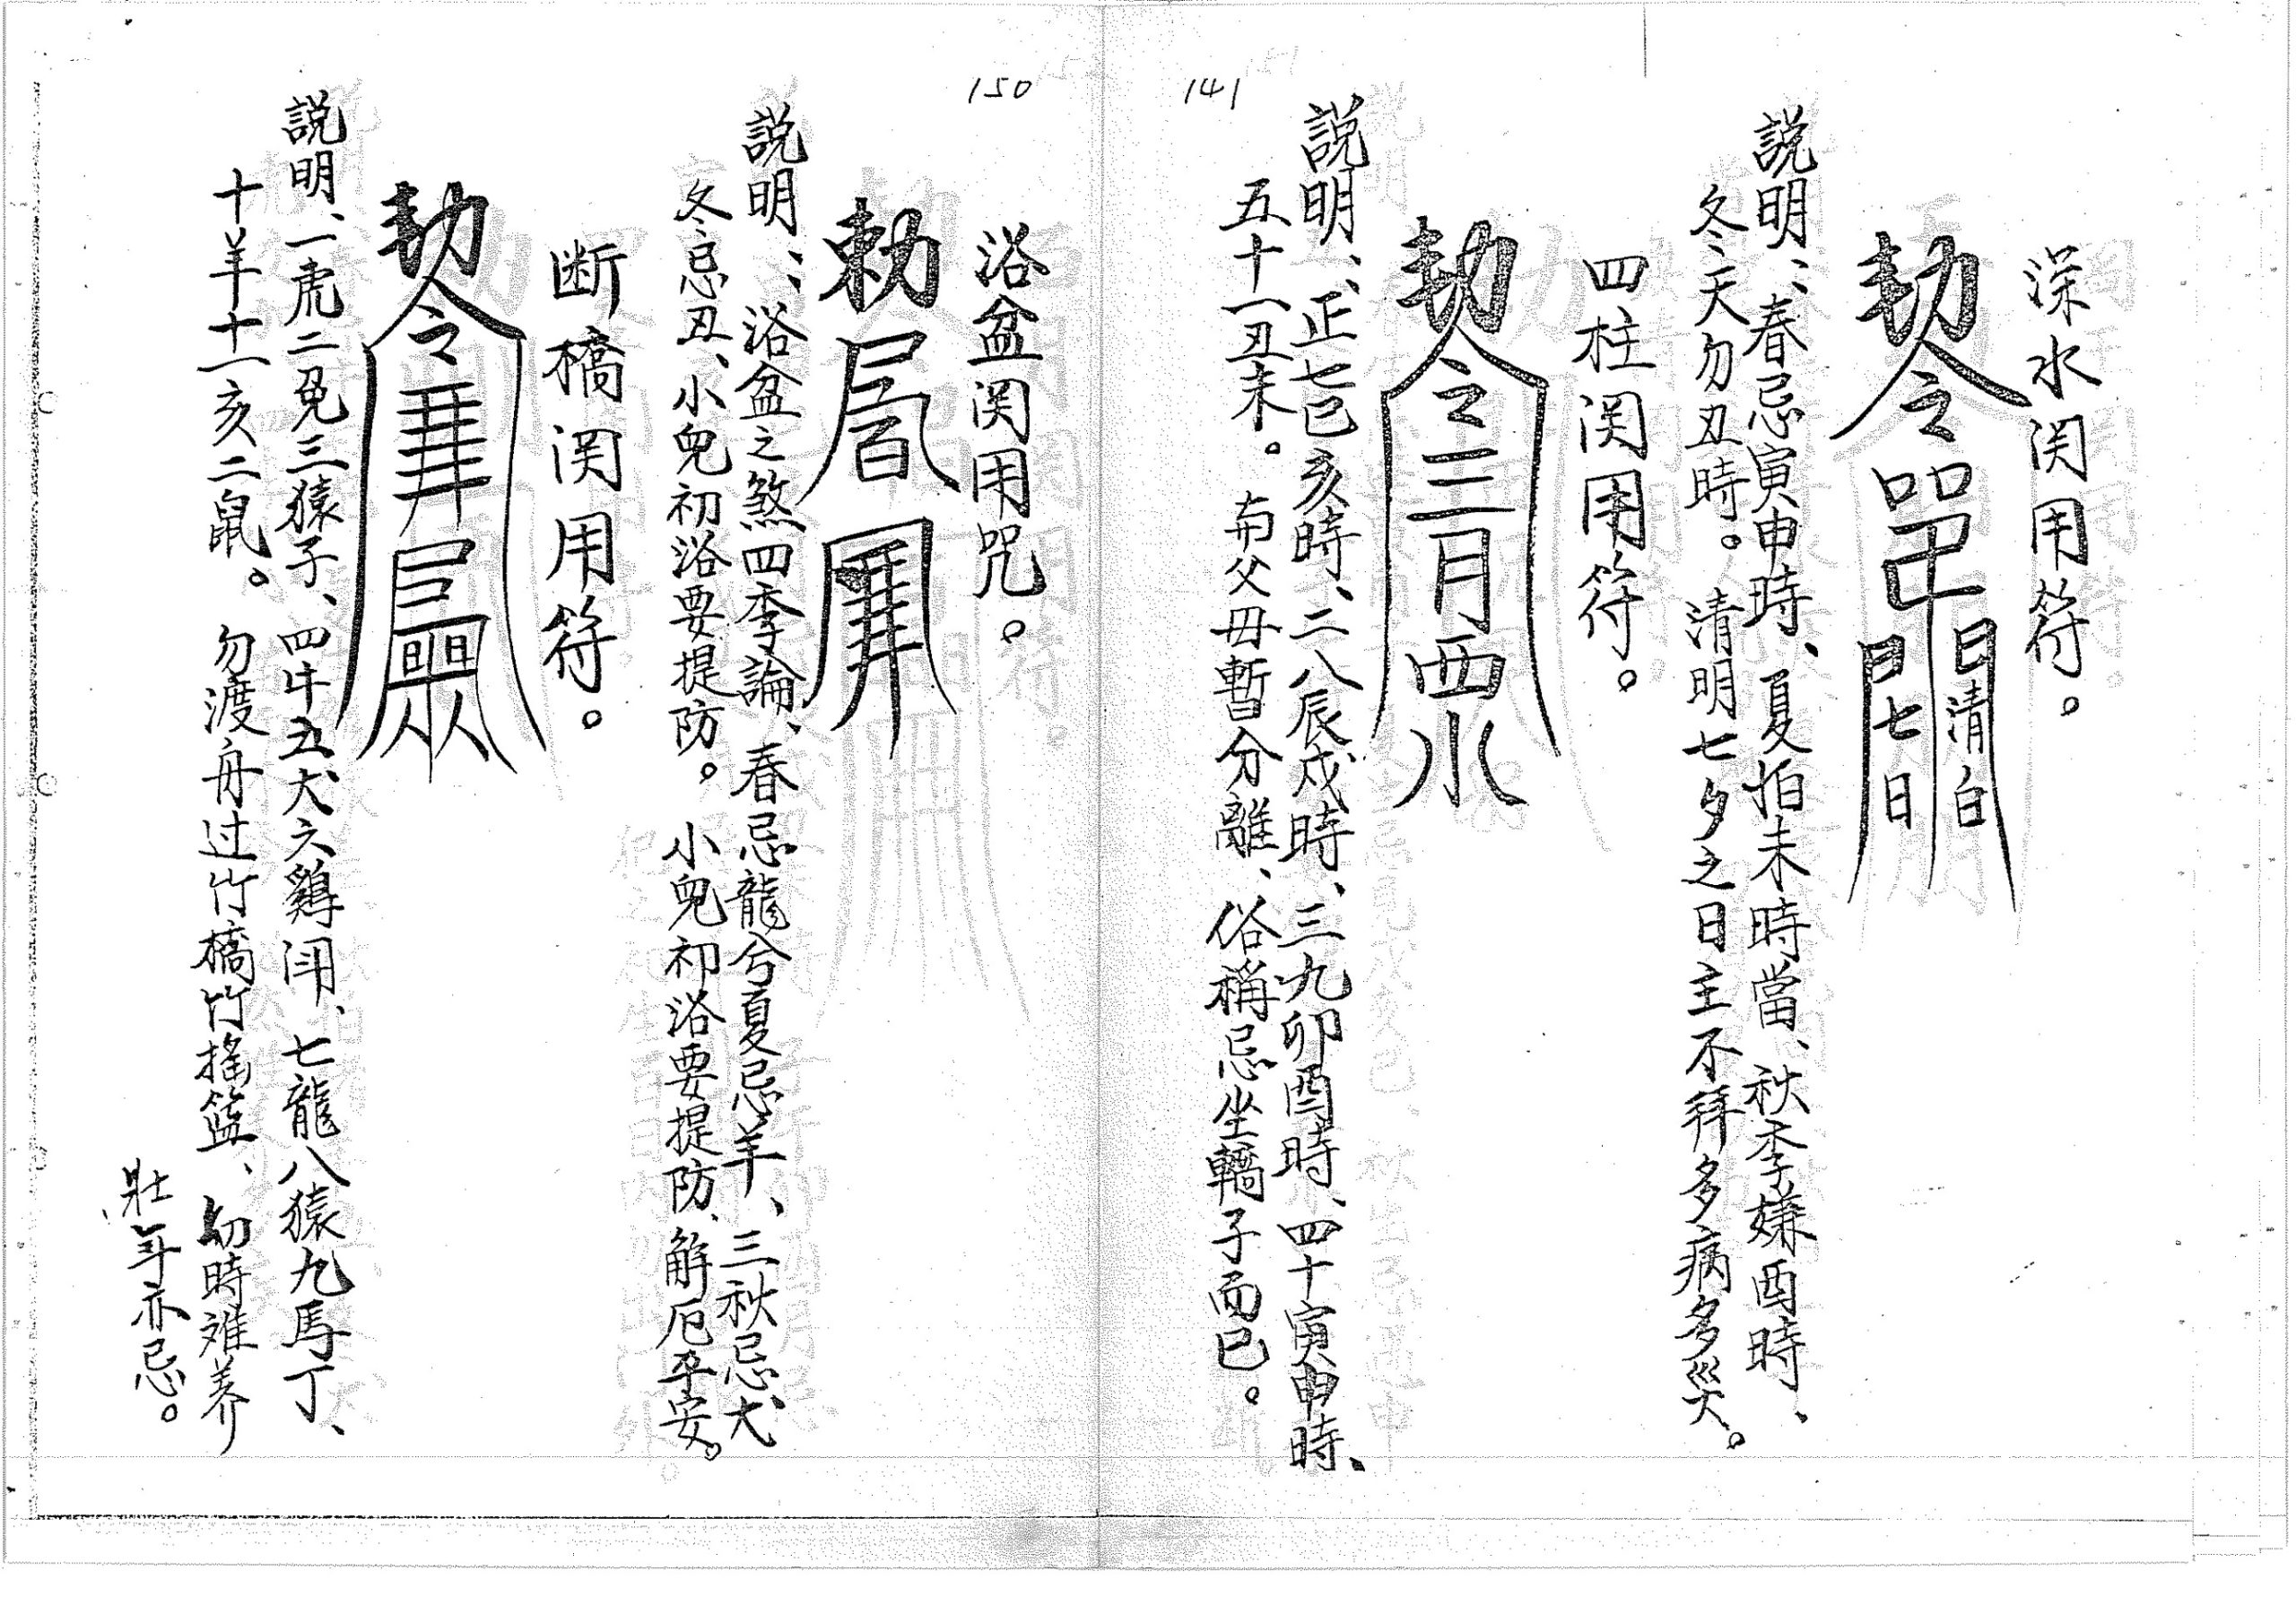 141
深水関用符。
勅令
清白
七日
説明、春忌寅申時、夏怕未時當、秋季嫌酉時、
冬天勿丑時。清明七夕之日主不拜多病多災。
四柱関用符。
勅令三月西水
説明、正七巳亥時、二八辰戌時、三九卯酉時、四十寅申時、
五十一丑未。与父母暫分離、俗稱忌坐轎子而已。
150
浴盆関用咒。
勅
説明：浴盆之煞四季論、春忌龍兮夏忌羊、三秋忌犬
冬忌丑、小兒初浴要提防。小兒初浴要提防、解厄平安。
断橋関用符。
勅令
説明、一虎二兔三猿子、四牛五犬六鷄闰、七龍八猿九馬丁、
十羊十一亥二鼠。勿渡舟过竹橋竹搖籃、幼時难养
壯年亦忌。